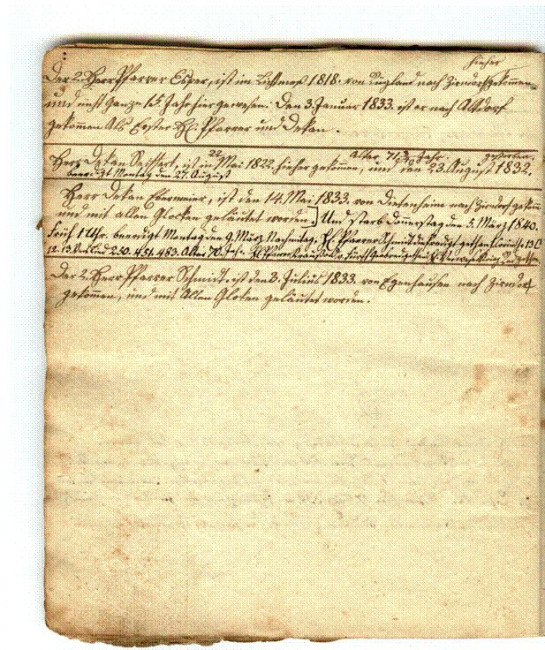 hieher
Der 2. Herr Pfarrer Esper, ist im Lichtmeß 1818. von Lugland nach Zirndorf gekommen
und ist ganze 15. Jahr hier gewesen. Den 3. Januar 1833. ist er nach Altdorf
gekommen Als Erster H. Pfarrer und Dekan.
alter 71 Jahr. gestorben.
Herr Dekan Seiffert, ist im 22 Mai 1822. hieher gekommen, und den 23. August 1832.
beerdigt Montag den 27. August
Herr Dekan Ebermeier, ist den 14. Mai 1833. von Dietenheim nach Zirndorf gekommen
und mit allen Glocken geläutet worden.] Und starb Donnerstag den 5. März 1840.
früh 1 Uhr. beerdigt Montag den 9. März Nachmittag. H. Pfarrer Schmidt
12. 13. Lied 230. 451. 483. Alter 70 Jah. H. Pfarrer
Der 2. Herr Pfarrer Schmidt, ist den 3. Julius 1833. von Egenhausen nach Zirndorf
gekommen, und mit Allen Gloken geläutet worden.